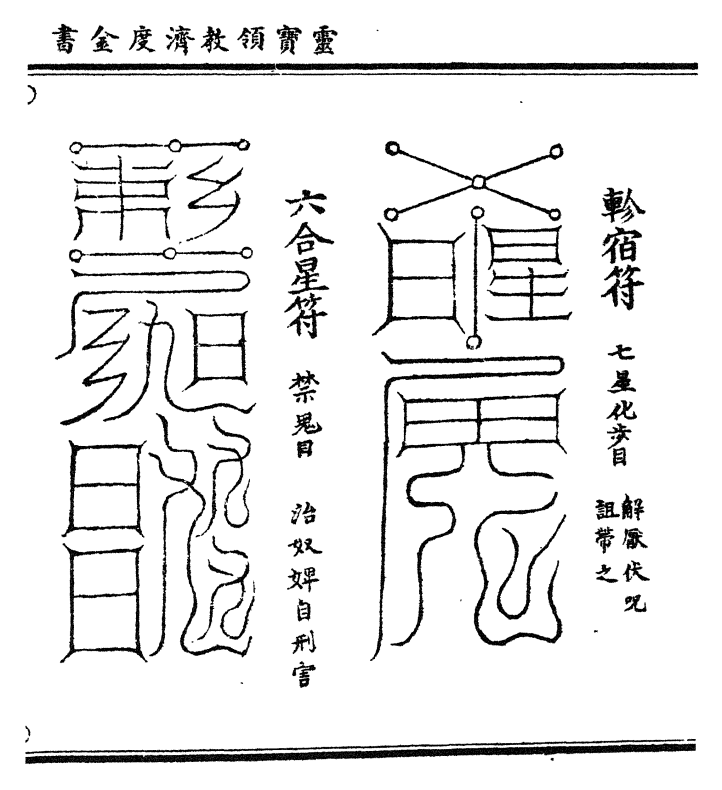 靈寶領教濟度金書
軫宿符 七星化步目 解厭伏呪
詛帶之
六合星符 禁鬼目 治奴婢自刑害